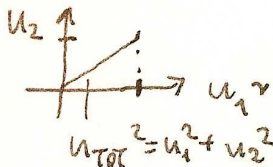 u₂
u₁ r
u_TOT² = u₁² + u₂²